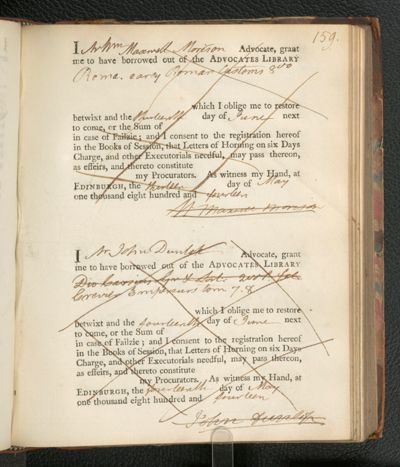 159.
I Mr Wm Maxwell Morison Advocate, grant
me to have borrowed out of the ADVOCATES LIBRARY
Roma. Roman Customs 8vo
which I oblige me to restore
betwixt and the thirteenth day of June next
to come, or the Sum of
in case of Failzie; and I consent to the registration hereof
in the Books of Session, that Letters of Horning on six Days
Charge, and other Executorials needful, may pass thereon,
as effeirs, and thereto constitute
my Procurators. As witness my Hand, at
EDINBURGH, the thirteen day of May
one thousand eight hundred and fourteen
W Maxwell Morison
I Mr John Dunlop Advocate, grant
me to have borrowed out of the ADVOCATES LIBRARY
Dio Cassius
Crevier Emperours tom 7. 8
which I oblige me to restore
betwixt and the fourteenth day of June next
to come, or the Sum of
in case of Failzie; and I consent to the registration hereof
in the Books of Session, that Letters of Horning on six Days
Charge, and other Executorials needful, may pass thereon,
as effeirs, and thereto constitute
my Procurators. As witness my Hand, at
EDINBURGH, the fourteenth day of May
one thousand eight hundred and fourteen
John Dunlop